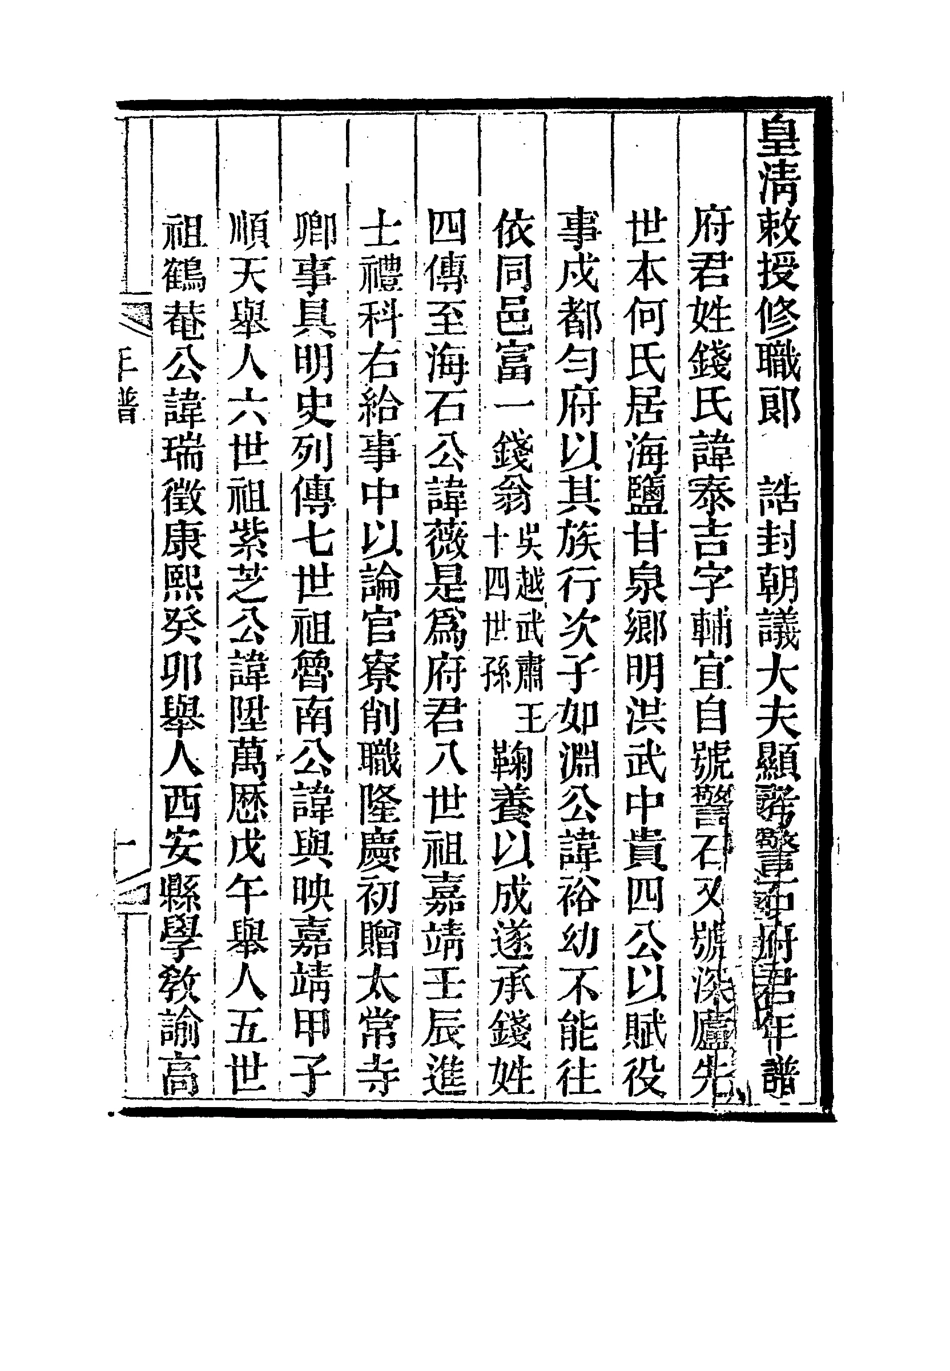 皇淸敕授修職郎　誥封朝議大夫顯考警石府君年譜
府君姓錢氏諱泰吉字輔宜自號警石又號深廬先
世本何氏居海鹽甘泉鄕明洪武中貴四公以賦役
事戍都勻府以其族行次子如淵公諱裕幼不能往
依同邑富一錢翁吳越武肅王十四世孫鞠養以成遂承錢姓
四傳至海石公諱薇是爲府君八世祖嘉靖壬辰進
士禮科右給事中以論官寮削職隆慶初贈太常寺
卿事具明史列傳七世祖魯南公諱與映嘉靖甲子
順天舉人六世祖紫芝公諱陞萬歷戊午舉人五世
祖鶴菴公諱瑞徵康熙癸卯舉人西安縣學教諭高
年譜
一